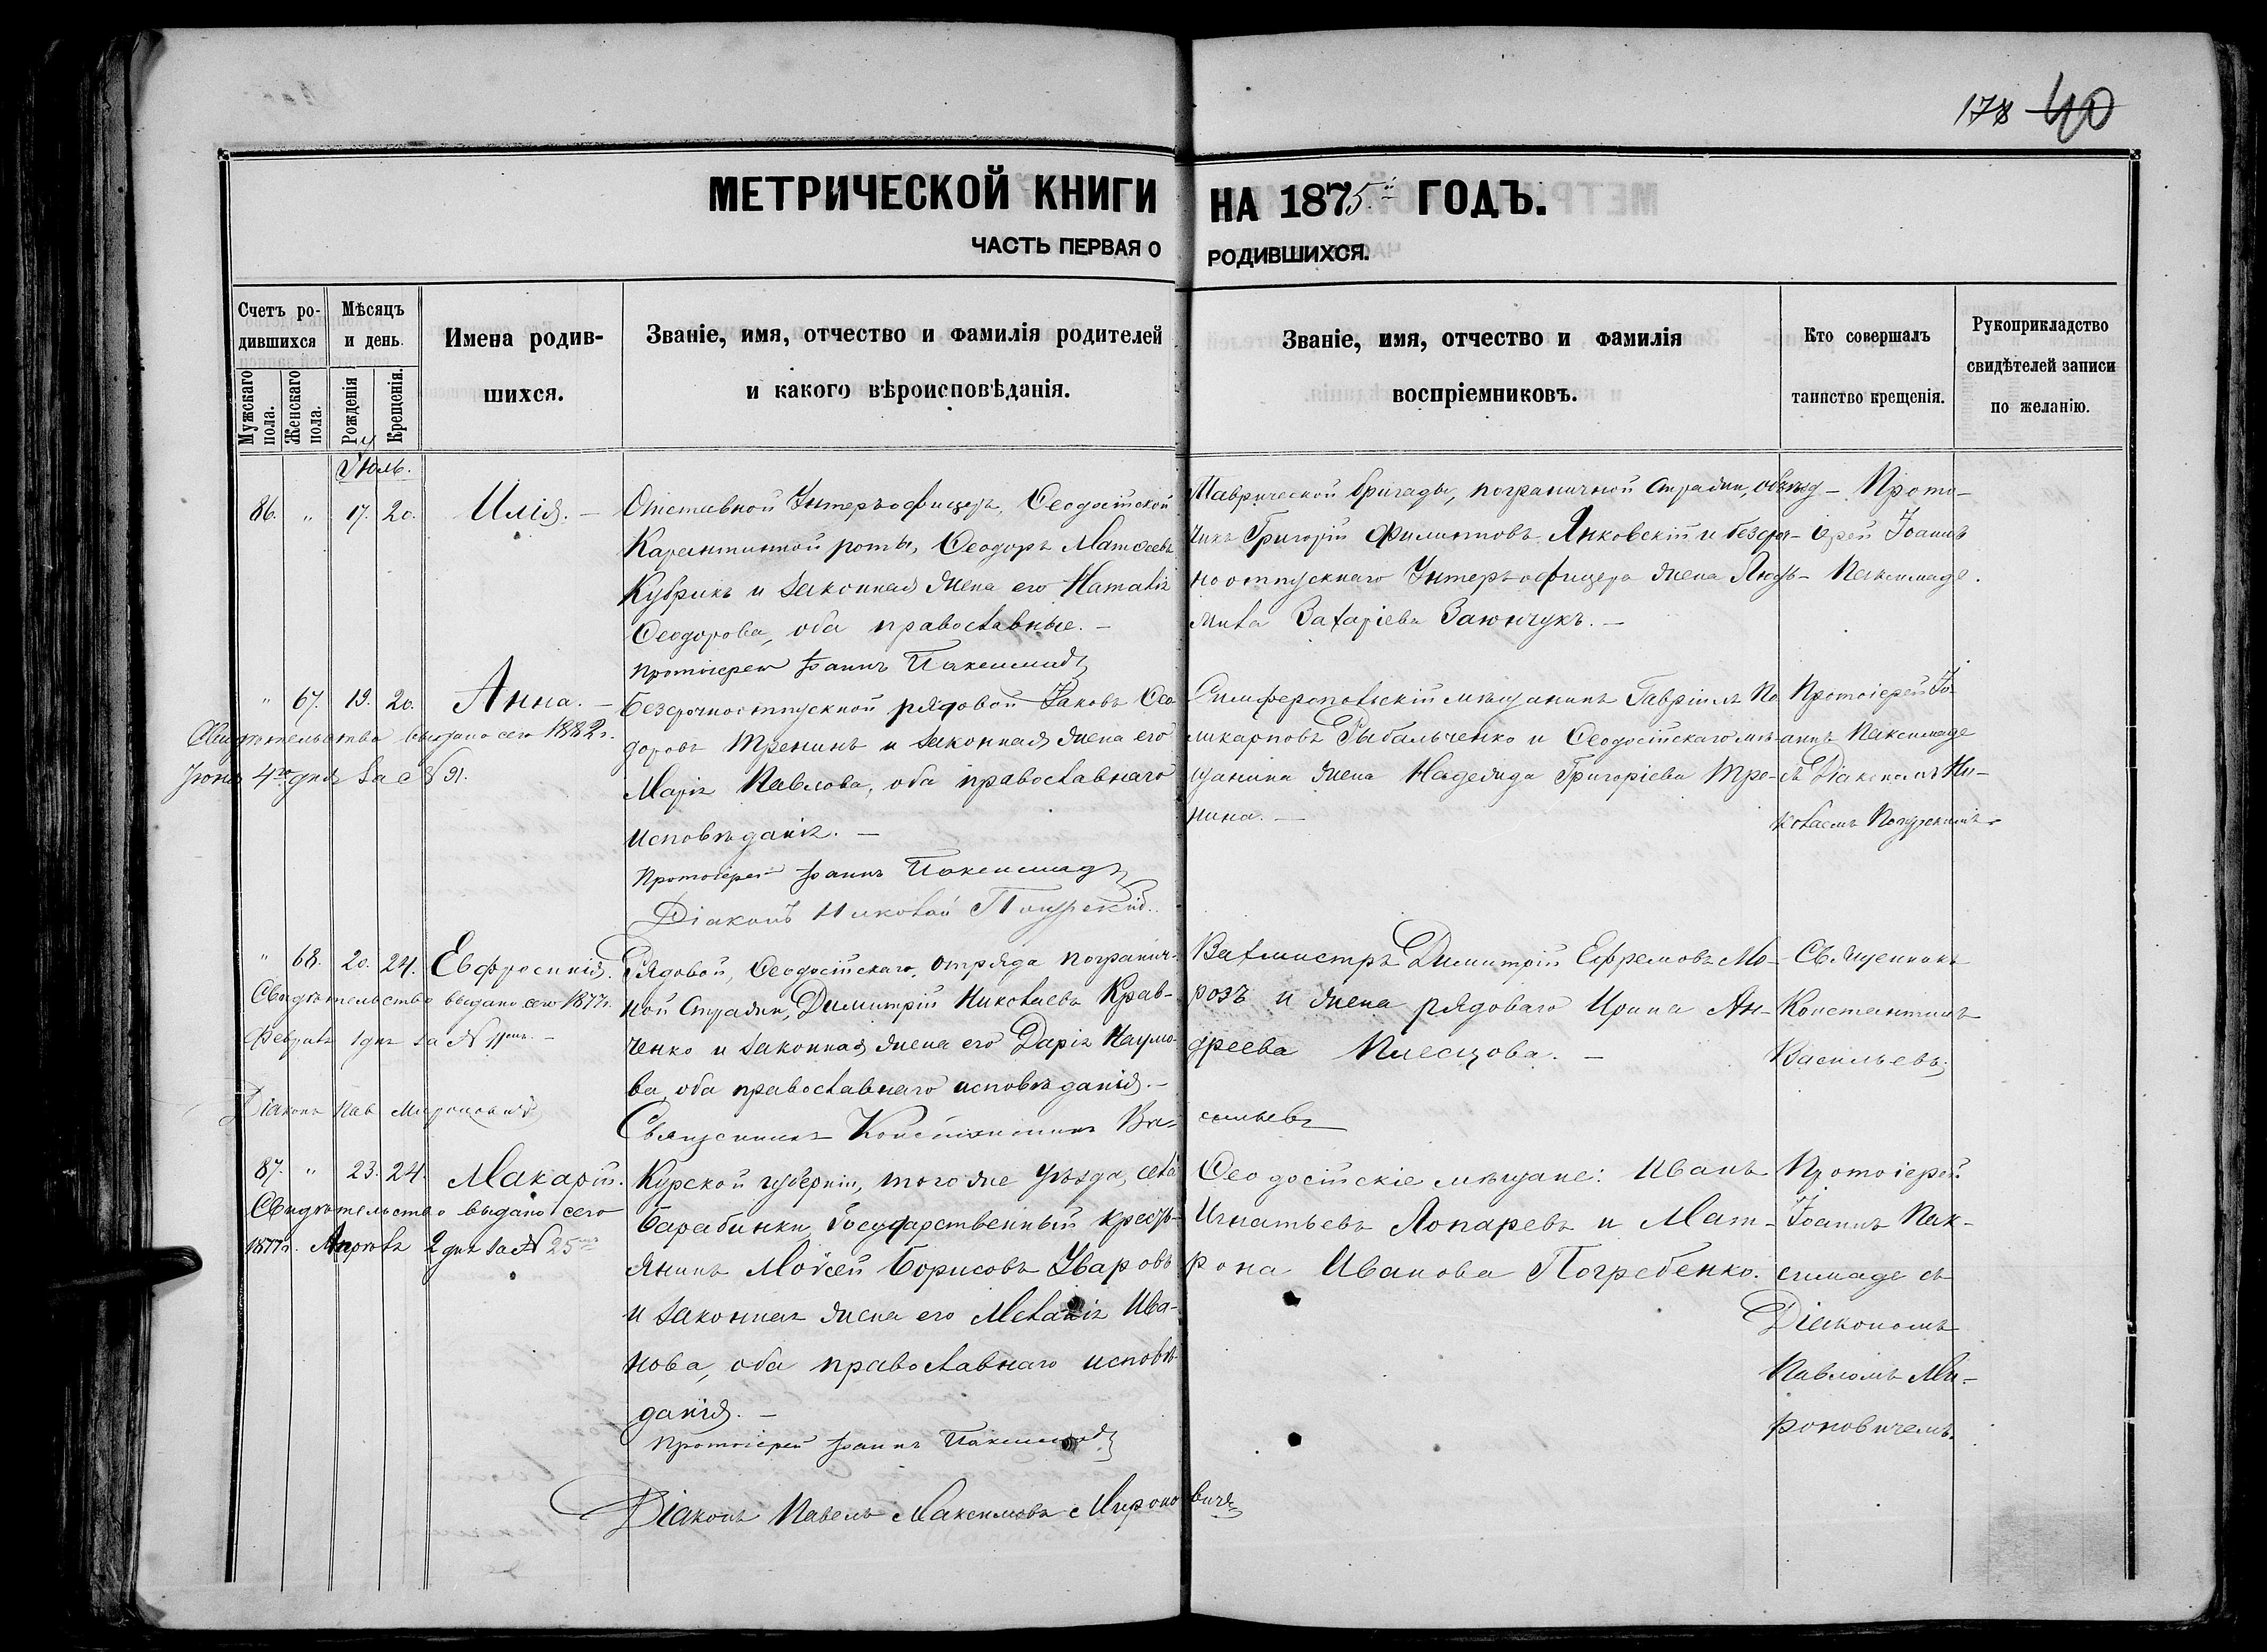 178 40
МЕТРИЧЕСКОЙ КНИГИ НА 1875й ГОДЪ.
ЧАСТЬ ПЕРВАЯ О РОДИВШИХСЯ.
Счетъ родившихся
Мужскаго пола.
Женскаго пола.
Мѣсяцъ и день.
Рожденія
Крещенія.
Имена родив-
шихся.
Званіе, имя, отчество и фамилія родителей
и какого вѣроисповѣданія.
Званіе, имя, отчество и фамилія
воспріемниковъ.
Кто совершалъ
таинство крещенія.
Рукоприкладство
свидѣтелей записи
по желанію.
Іюль.
86. " 17. 20. Илія. –
Отставной Унтеръ-офицеръ, Ѳеодосійской
Карантинной роты, Ѳеодоръ Матѳеевъ
Кубрикъ и законная жена его Наталія
Ѳеодорова, оба православные. –
Протоіерей Іоаннъ Паксимадъ
Таврической бригады, пограничной стражи, объѣзд-
чикъ Григорій Филиповъ Янковскій и безсроч-
ноотпускнаго Унтеръ-офицера жена Люд-
мила Захаріева Заюнчукъ. –
Прото-
іерей Іоаннъ
Паксимаде.
" 67. 19. 20. Анна. –
Свидѣтельство выдано сего 1882 г.
Іюня 4го дня за № 91.
Безсрочноотпускной рядовой Іаковъ Ѳео-
доровъ Тренинъ и законная жена его
Марія Павлова, оба православнаго
исповѣданія. –
Протоіерей Іоаннъ Паксимадъ
Діаконъ Николай
Симферопольскій мѣщанинъ Гавріилъ По-
ликарповъ Рыбальченко и Ѳеодосійскаго мѣ-
щанина жена Надежда Григоріева Тро-
нина. –
Протоіерей Іо-
аннъ Паксимаде
съ Діакономъ Ни-
колаемъ
" 68. 20. 24. Евфросинія.
Свидѣтельство выдано сего 1877 г.
Февраля 1 дня за № 11
Діаконъ Пав. Мироновичъ
Рядовой, Ѳеодосійскаго отряда погранич-
ной стражи, Димитрій Николаевъ Крав-
ченко и законная жена его Дарія Наумо-
ва, оба православнаго исповѣданія. –
Священникъ Константинъ Ва-
сильевъ
Вахмистръ Димитрій Ефремовъ Мо-
розъ и жена рядоваго Ирина Ан-
дреева Плесцова. –
Священникъ
Константинъ
Васильевъ.
87. " 23. 24. Макарій.
Свидѣтельство выдано сего
1877 г. Апрѣля 2 дня за № 25
Курской губерніи, того же уѣзда, села
Барабинки, Государственный кресть-
янинъ Моѵсей Борисовъ Уваровъ
и законная жена его Меланія Ива-
нова, оба православнаго исповѣ-
данія. –
Протоіерей Іоаннъ Паксимадъ
Діаконъ Павелъ Максимовъ Мироновичъ
Ѳеодосійскіе мѣщане: Иванъ
Игнатьевъ Лопаревъ и Мат-
рона Иванова Погребенко.
Протоіерей
Іоаннъ Пак-
симаде съ
Діакономъ
Павломъ Ми-
роновичемъ.